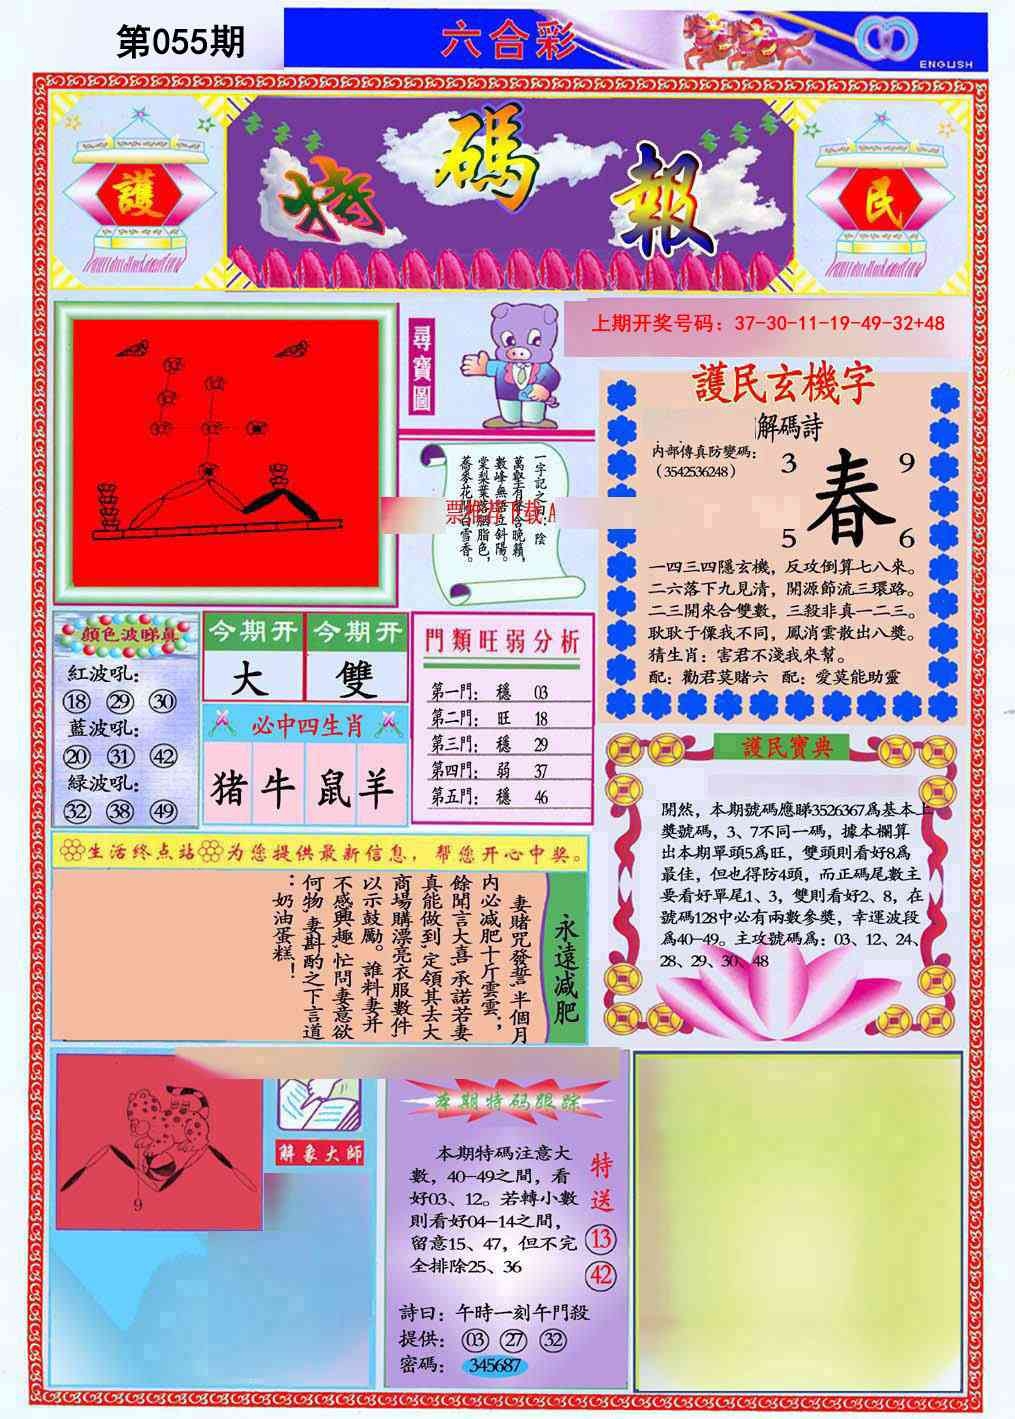 第055期
六合彩
ENGLISH
護
特碼報
民
尋寶圖
上期开奖号码：37-30-11-19-49-32+48
一字記之曰：陰
萬壑有聲含晚籟，
數峰無語立斜陽。
棠梨葉落胭脂色，
蕎麥花開白雪香。
護民玄機字
解碼詩
內部傳真防變碼：
（3542536248）
3
9
春
5
6
一四三四隱玄機，反攻倒算七八來。
二六落下九見清，開源節流三環路。
二三開來合雙數，三殺非真一二三。
耿耿于懷我不同，鳳消雲散出八獎。
猜生肖：害君不淺我來幫。
配：勸君莫賭六 配：愛莫能助靈
顔色波睇真
紅波吼：
18 29 30
藍波吼：
20 31 42
緑波吼：
32 38 49
今期开 今期开
大 雙
必中四生肖
猪牛鼠羊
門類旺弱分析
第一門： 穩 03
第二門： 旺 18
第三門： 穩 29
第四門： 弱 37
第五門： 穩 46
護民寶典
開然，本期號碼應睇3526367爲基本上
獎號碼，3、7不同一碼，據本欄算
出本期單頭5爲旺，雙頭則看好8爲
最佳，但也得防4頭，而正碼尾數主
要看好單尾1、3，雙則看好2、8，在
號碼128中必有兩數參獎，幸運波段
爲40-49。主攻號碼爲：03、12、24、
28、29、30、48
生活终点站 为您提供最新信息，帮您开心中奖。
永遠減肥
妻賭咒發誓，半個月
内必減肥十斤雲雲，；
餘聞言大喜，承諾若妻
真能做到，定領其去大
商場購漂亮衣服數件
以示鼓勵。誰料妻并
不感興趣，忙問妻意欲
何物，妻斟酌之下言道
：奶油蛋糕！
9
解象大師
本期特码跟踪
本期特碼注意大
數，40-49之間，看
好03、12。若轉小數
則看好04-14之間，
留意15、47，但不完
全排除25、36
特送
13
42
詩曰：午時一刻午門殺
提供： 03 27 32
密碼： 345687